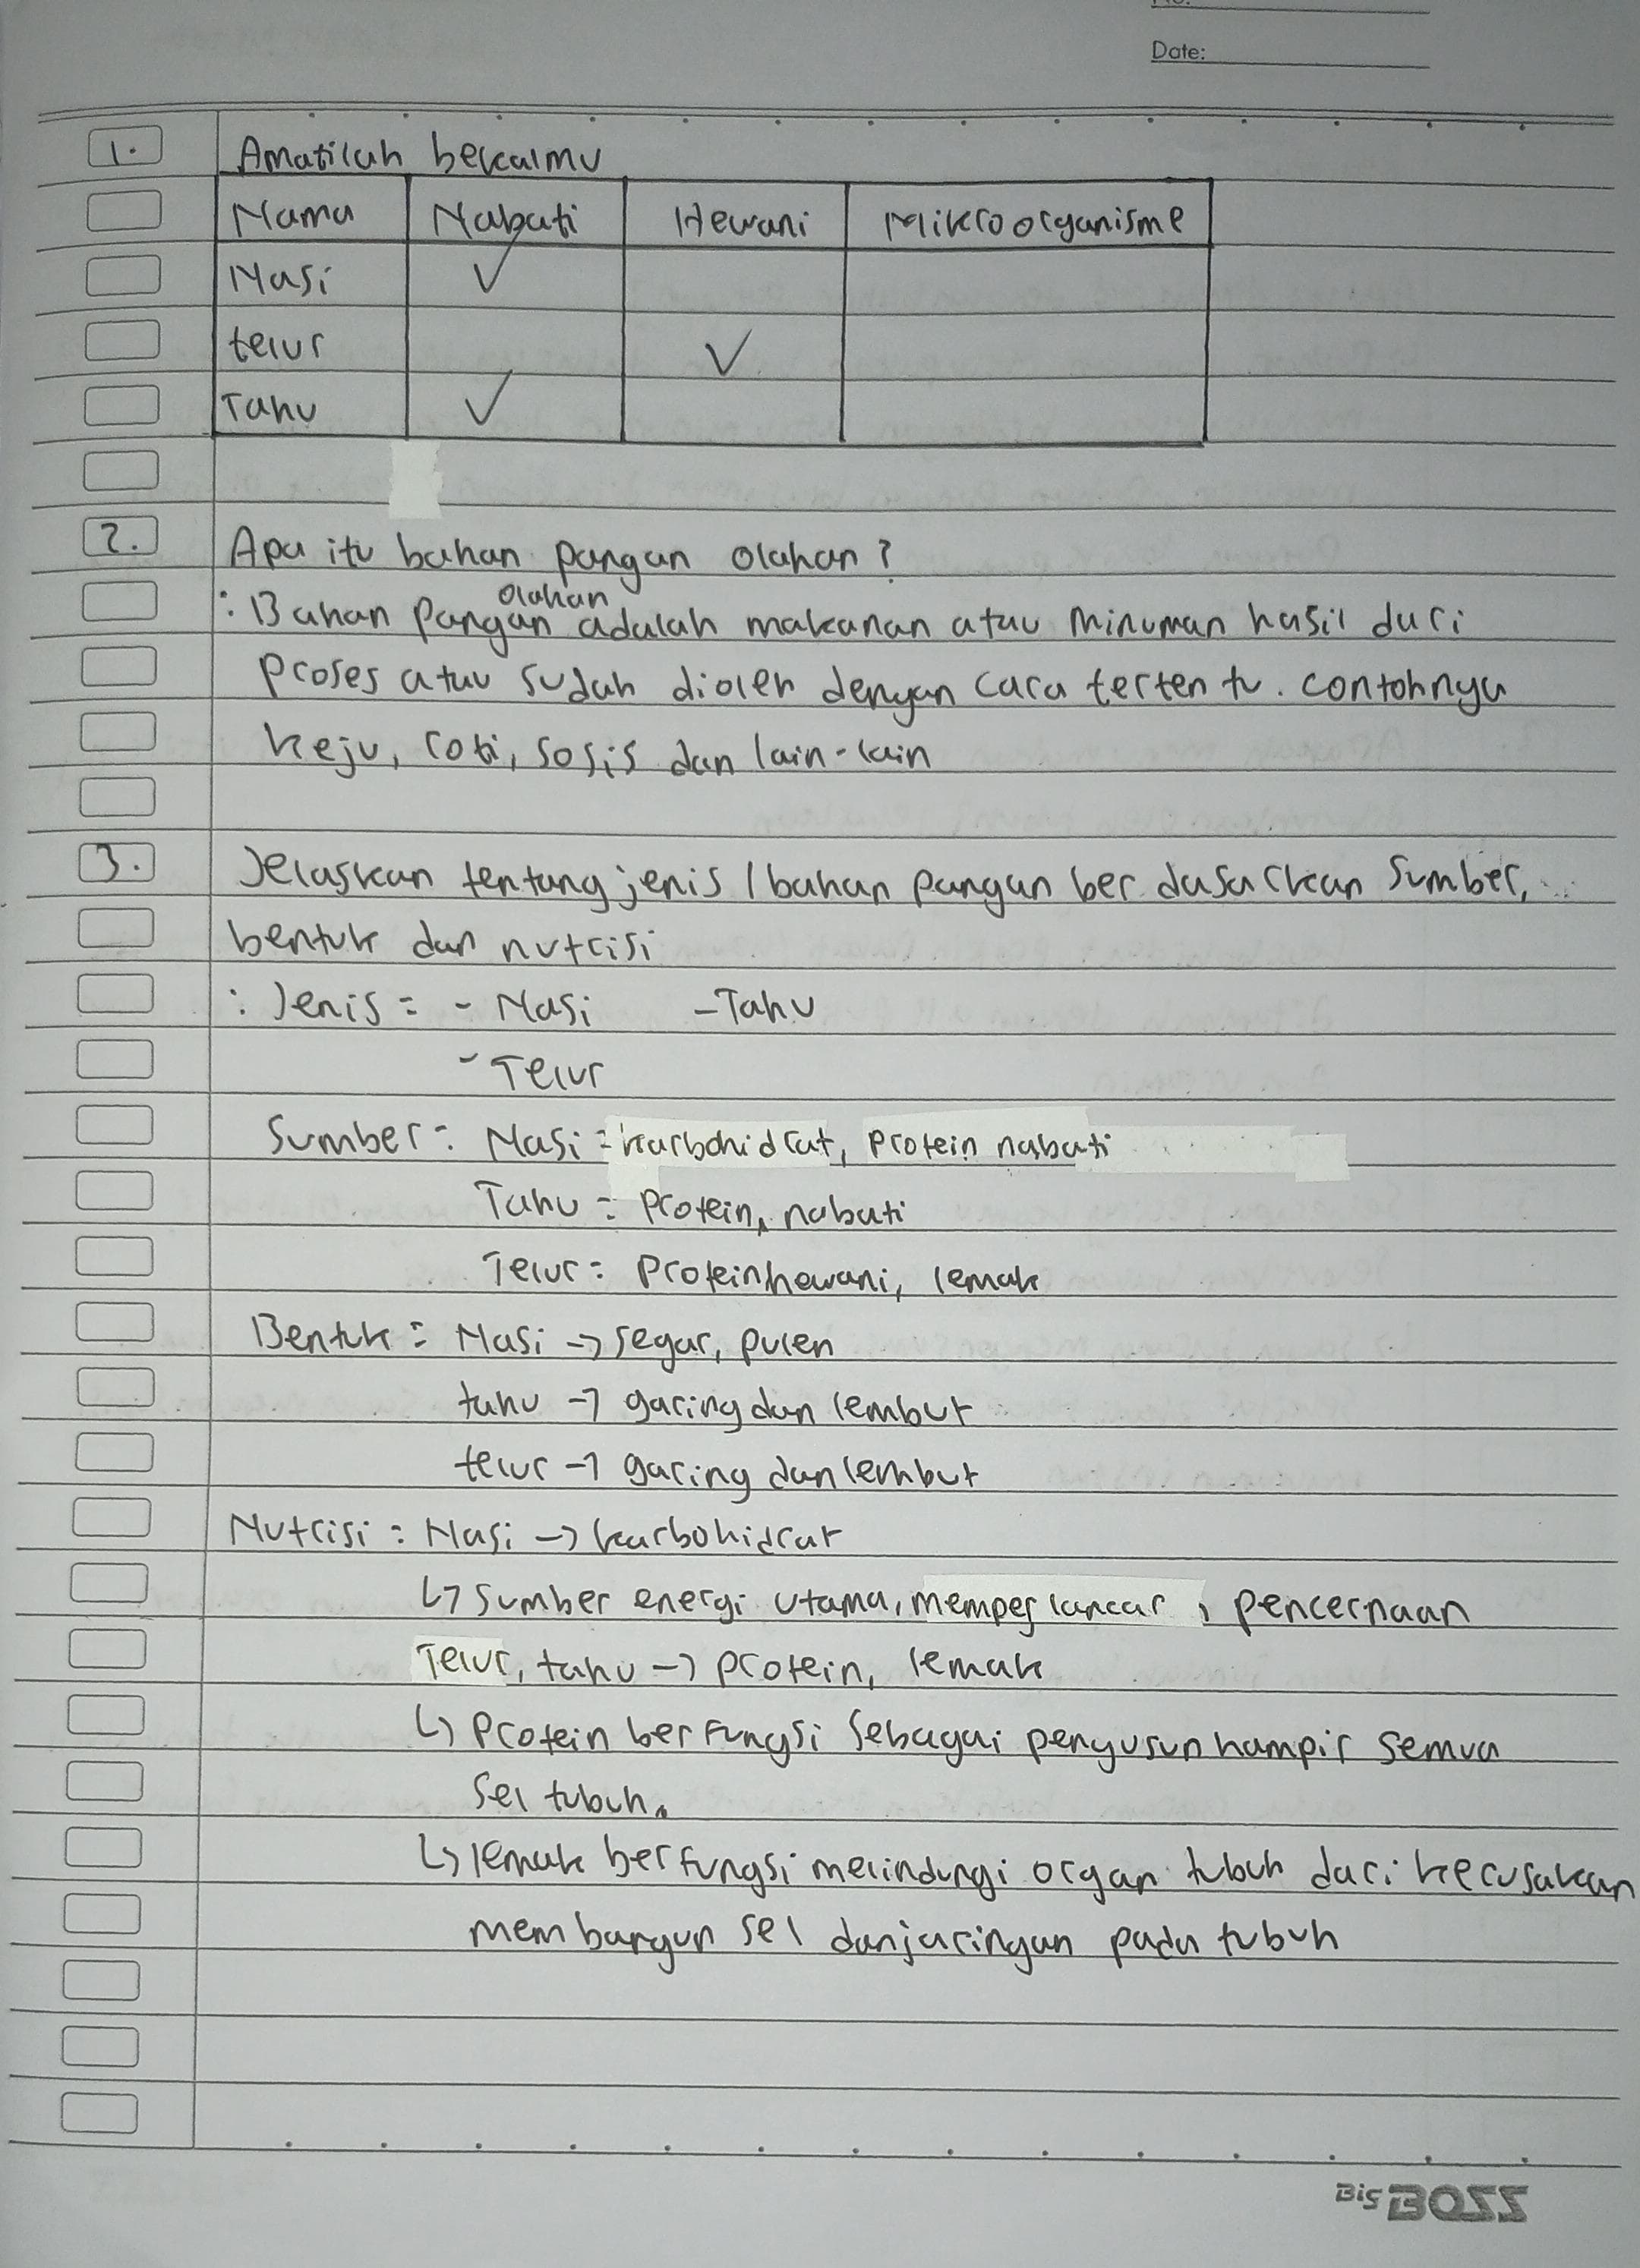 Date:
1. Amatilah bekalmu
Nama Nabati Hewani Mikroorganisme
Nasi ✓
telur ✓
Tahu ✓
2. Apa itu bahan pangan olahan?
: Bahan pangan olahan adalah makanan atau minuman hasil dari
proses atau sudah dioleh dengan cara tertentu. contohnya
keju, roti, sosis dan lain-lain
3. Jelaskan tentang jenis / bahan pangan berdasarkan sumber,
bentuk dan nutrisi
: Jenis = - Nasi - Tahu
- Telur
Sumber = Nasi = karbohidrat, protein nabati
Tahu = Protein, nabati
Telur = Protein hewani, lemak
Bentuk = Nasi → segar, pulen
tahu → garing dan lembut
telur → garing dan lembut
Nutrisi = Nasi → karbohidrat
↳ sumber energi utama, memperlancar, pencernaan
Telur, tahu → protein, lemak
↳ Protein berfungsi sebagai penyusun hampir semua
sel tubuh.
↳ lemak berfungsi melindungi organ tubuh dari kerusakan
membangun sel dan jaringan pada tubuh
Big BOSS